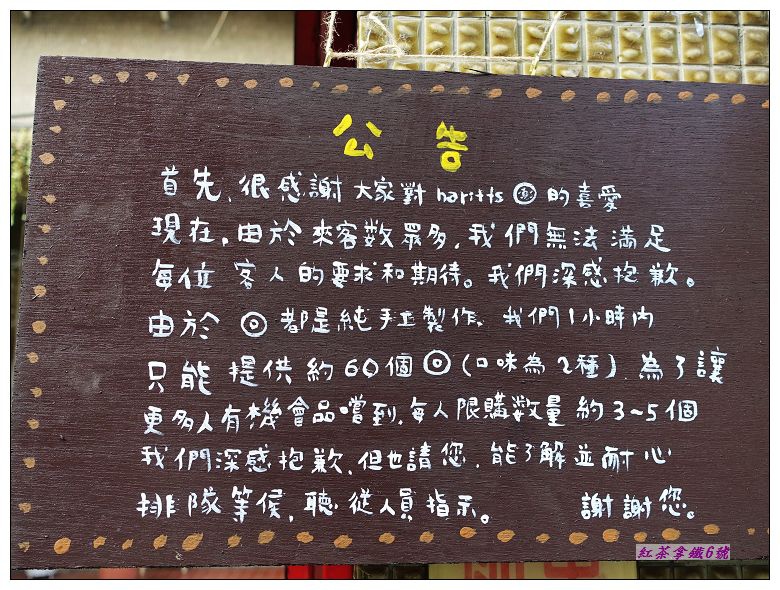 公告
首先,很感謝大家對 haritts ◎的喜愛
現在,由於來客數眾多,我們無法滿足
每位客人的要求和期待。我們深感抱歉。
由於 ◎ 都是純手工製作,我們1小時內
只能提供約60個◎(口味為2種)為了讓
更多人有機會品嚐到,每人限購數量約3~5個
我們深感抱歉,但也請您,能了解並耐心
排隊等候,聽從人員指示。 謝謝您。
紅茶拿鐵6號